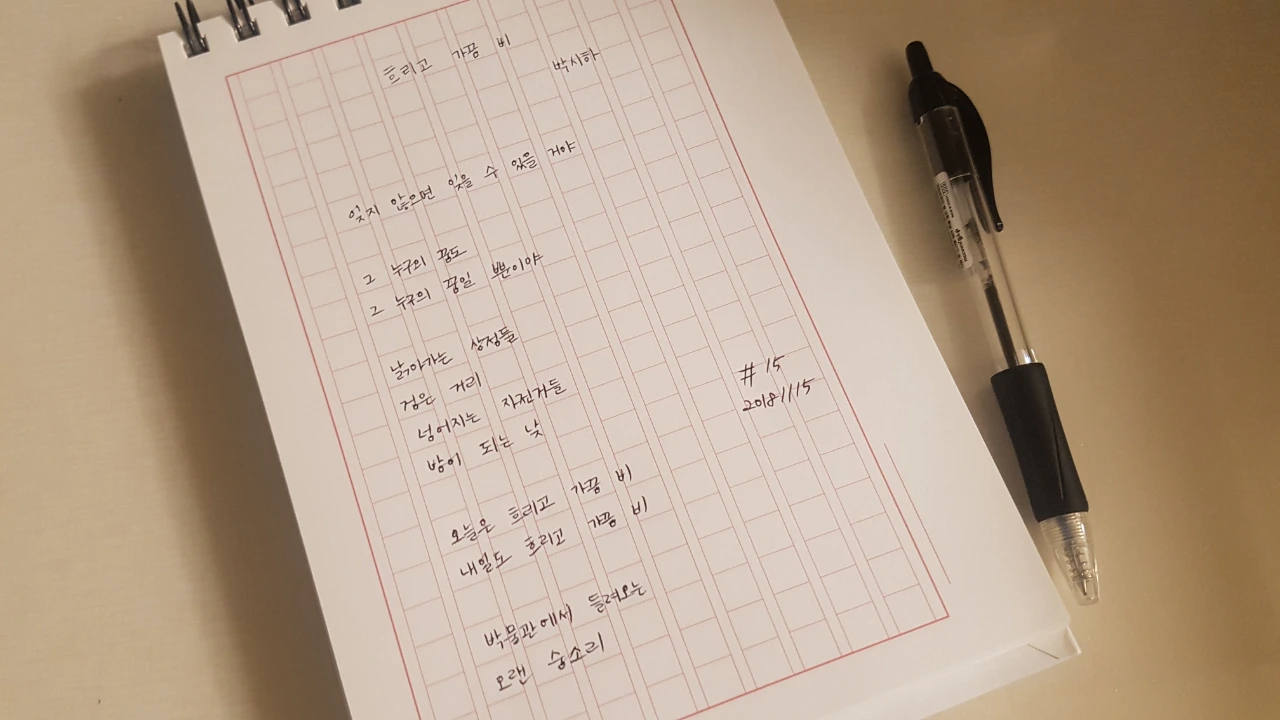 흐리고 가끔 비
박시하
잊지 않으면 잊을 수 있을 거야
그 누구의 꿈도
그 누구의 꿈일 뿐이야
낡아가는 상점들
검은 거리
넘어지는 자전거들
밤이 되는 낮
오늘은 흐리고 가끔 비
내일도 흐리고 가끔 비
박물관에서 들려오는
오랜 숨소리
# 15
20181115